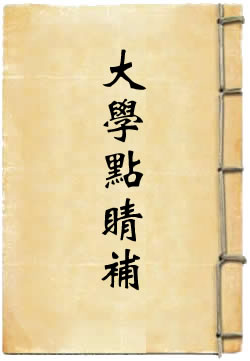 大學點睛補